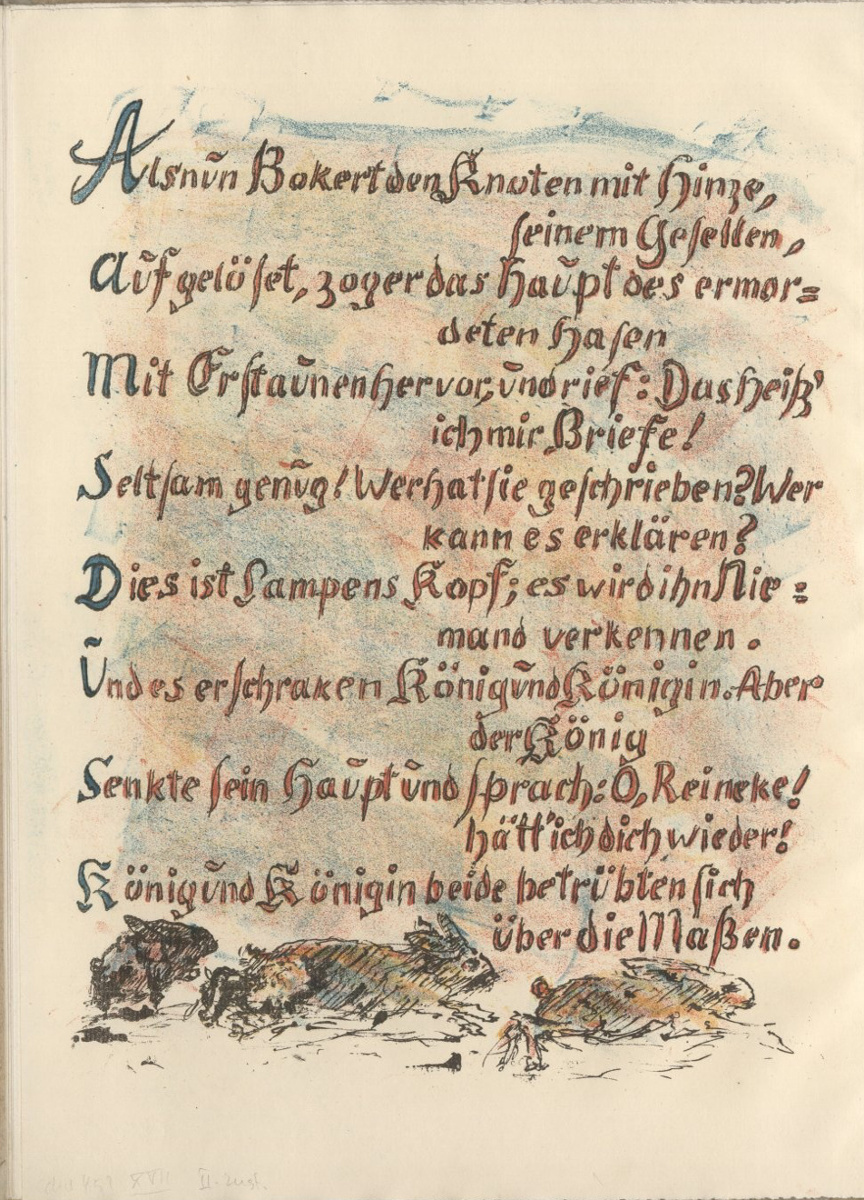 Als nun Bokert den Knoten mit Hinze,
seinem Gesellen,
Aufgelöset, zog er das Haupt des ermor=
deten Hasen
Mit Erstaunen hervor, und rief: Das heiß'
ich mir Briefe!
Seltsam genug! Wer hat sie geschrieben? Wer
kann es erklären?
Dies ist Lampens Kopf; es wird ihn Nie=
mand verkennen.
Und es erschraken König und Königin. Aber
der König
Senkte sein Haupt und sprach: O, Reineke!
hätt' ich dich wieder!
König und Königin beide betrübten sich
über die Maßen.